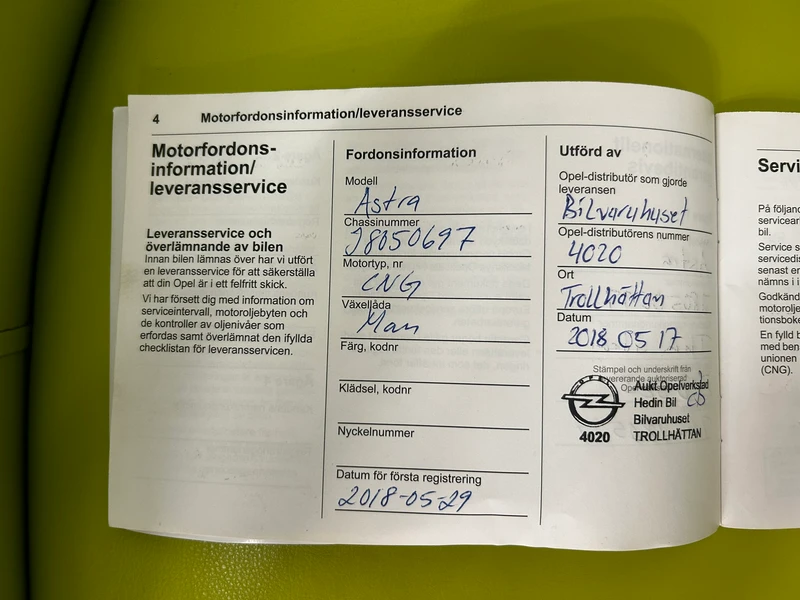 4 Motorfordonsinformation/leveransservice
Motorfordons-
information/
leveransservice
Leveransservice och
överlämnande av bilen
Innan bilen lämnas över har vi utfört
en leveransservice för att säkerställa
att din Opel är i ett felfritt skick.
Vi har försett dig med information om
serviceintervall, motoroljebyten och
de kontroller av oljenivåer som
erfordas samt överlämnat den ifyllda
checklistan för leveransservicen.
Fordonsinformation
Modell
Astra
Chassinummer
J8050697
Motortyp, nr
CNG
Växellåda
Man
Färg, kodnr
Klädsel, kodnr
Nyckelnummer
Datum för första registrering
2018-05-29
Utförd av
Opel-distributör som gjorde
leveransen
Bilvaruhuset
Opel-distributörens nummer
4020
Ort
Trollhättan
Datum
2018 05 17
Stämpel och underskrift från
levererande auktoriserad
OPEL
Aukt Opelverkstad
Hedin Bil
Bilvaruhuset
4020 TROLLHÄTTAN
Servi
På följand
servicear
bil.
Service s
servicedis
senast er
nämns i i
Godkänd
motorolje
tionsboke
En fylld b
med ben
unionen
(CNG).